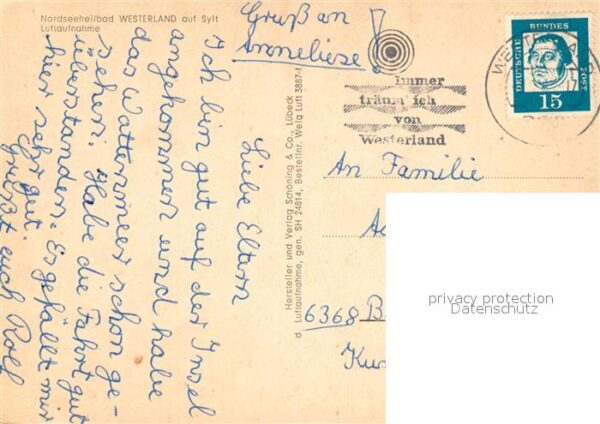 Nordseeheilbad WESTERLAND auf Sylt
Luftaufnahme
Gruß an
Anneliese!
Liebe Eltern
Ich bin gut auf der Insel
angekommen und habe
das Wattenmeer schon ge-
sehen. Habe die Fahrt gut
überstanden. Es gefällt mir
hier sehr gut.
Grüßt euch Rolf
Hersteller und Verlag Schöning & Co., Lübeck
Luftaufnahme, gen. SH 24814, Bestellnr. Welg Luft 3887-f
Immer
träum' ich
von
Westerland
DEUTSCHE BUNDES POST
15
An Familie
6368 B
Kur
privacy protection
Datenschutz